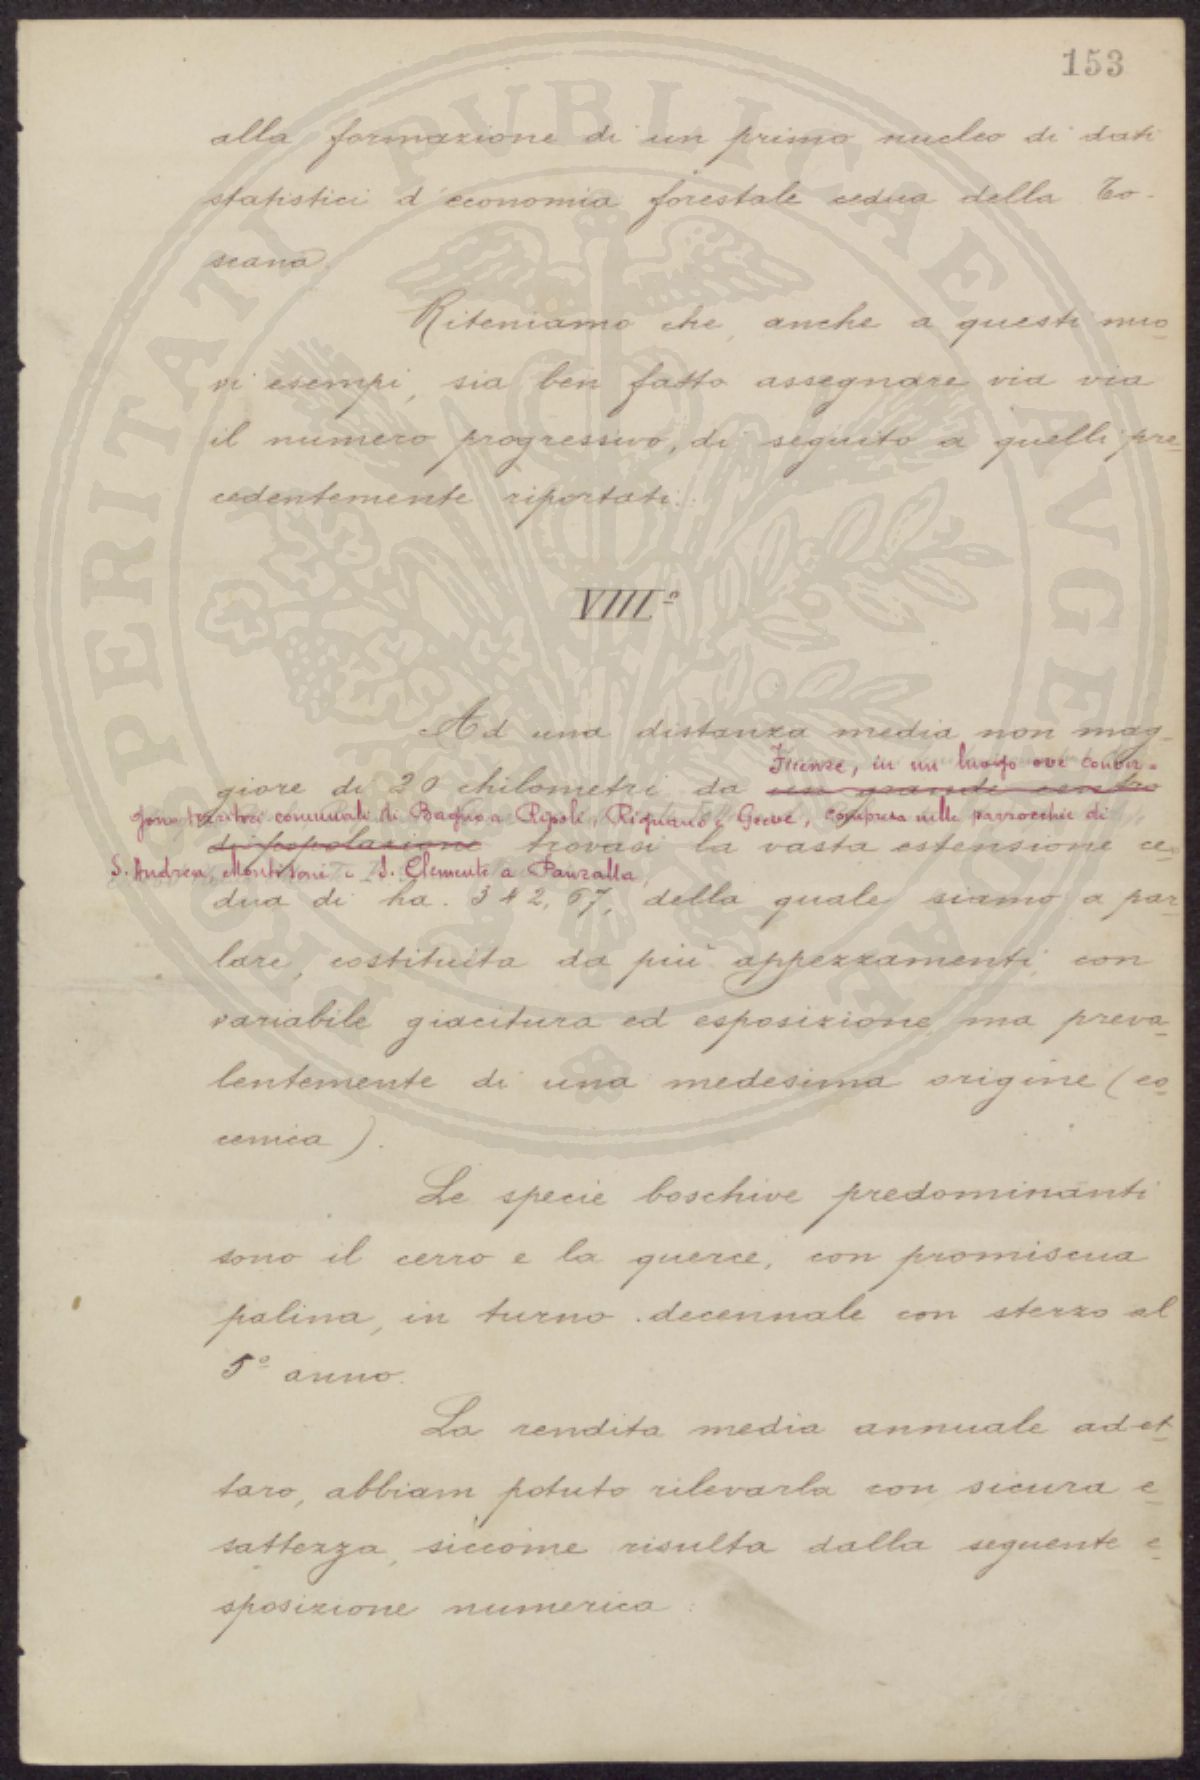 153
PROSPERITATI PUBLICAE AVGENDAE
alla formazione di un primo nucleo di dati
statistici d'economia forestale cedua della To-
scana.
Riteniamo che, anche a questi nuo-
vi esempi, sia ben fatto assegnare via via
il numero progressivo, di seguito a quelli pre-
cedentemente riportati.
VIIIº
Ad una distanza media non mag-
Firenze, in un luogo ove conver-
giore di 20 chilometri da un grande centro
gono territori comunali di Bagno a Ripoli, Rignano e Greve, compresa nelle parrocchie di
di popolazione trovasi la vasta estensione ce-
S. Andrea, e S. Clemente a Panzalla,
dua di ha. 342,67, della quale siamo a par-
lare, costituita da più appezzamenti, con
variabile giacitura ed esposizione, ma preva-
lentemente di una medesima origine (eo-
cenica).
Le specie boschive predominanti
sono il cerro e la querce, con promiscua
palina, in turno decennale con sterzo al
5º anno.
La rendita media annuale ad et-
taro, abbiam potuto rilevarla con sicura e-
sattezza, siccome risulta dalla seguente e-
sposizione numerica: